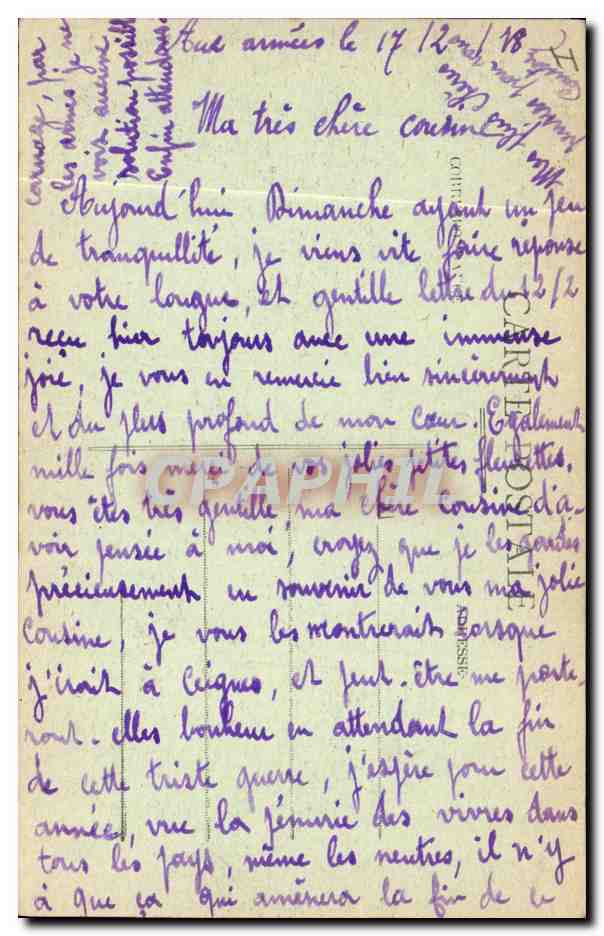 Aux armées le 17/2/18
I
Ma très chère cousine
Aujourd'hui Dimanche ayant un peu
de tranquillité, je viens vite faire réponse
à votre longue, et gentille lettre du 12/2
reçu hier toujours avec une immense
joie, je vous en remercie bien sincèrement
et du plus profond de mon cœur. Egalement
mille fois merci de vos jolies petites fleurettes,
vous êtes très gentille ma chère cousine d'a-
voir pensée à moi, croyez que je les gardes
précieusement en souvenir de vous ma jolie
Cousine, je vous les montrerait lorsque
j'irait à Ceignes, et peut-être me porte-
ront-elles bonheur en attendant la fin
de cette triste guerre, j'espère pour cette
année, vue la pénurie des vivres dans
tous les pays, même les neutres, il n'y
à que ça qui amènera la fin de ce
carnage, par
les armes je ne
vois aucune
solution possible
Enfin attendons.
CARTE POSTALE
ADRESSE
CPARAMA